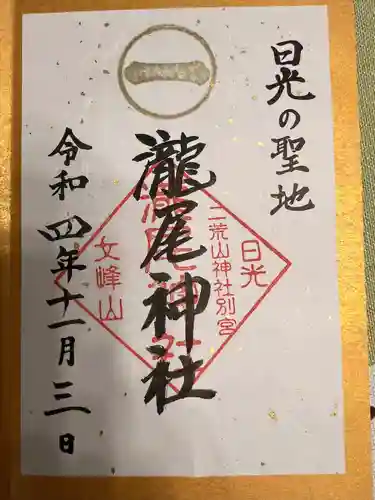 日光の聖地
瀧尾神社
令和四年十一月三日
日光
二荒山神社別宮
瀧尾神社
女峰山